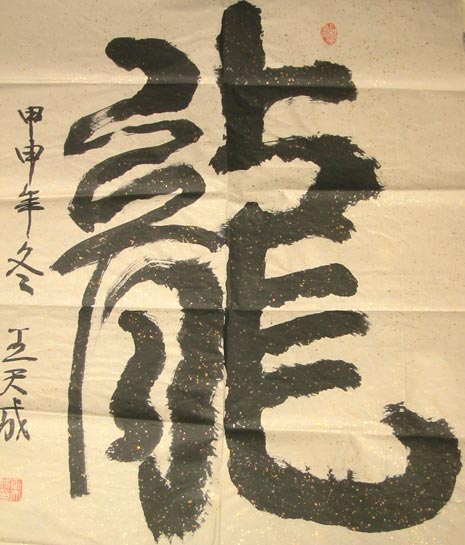 龍
甲申年冬 王天成